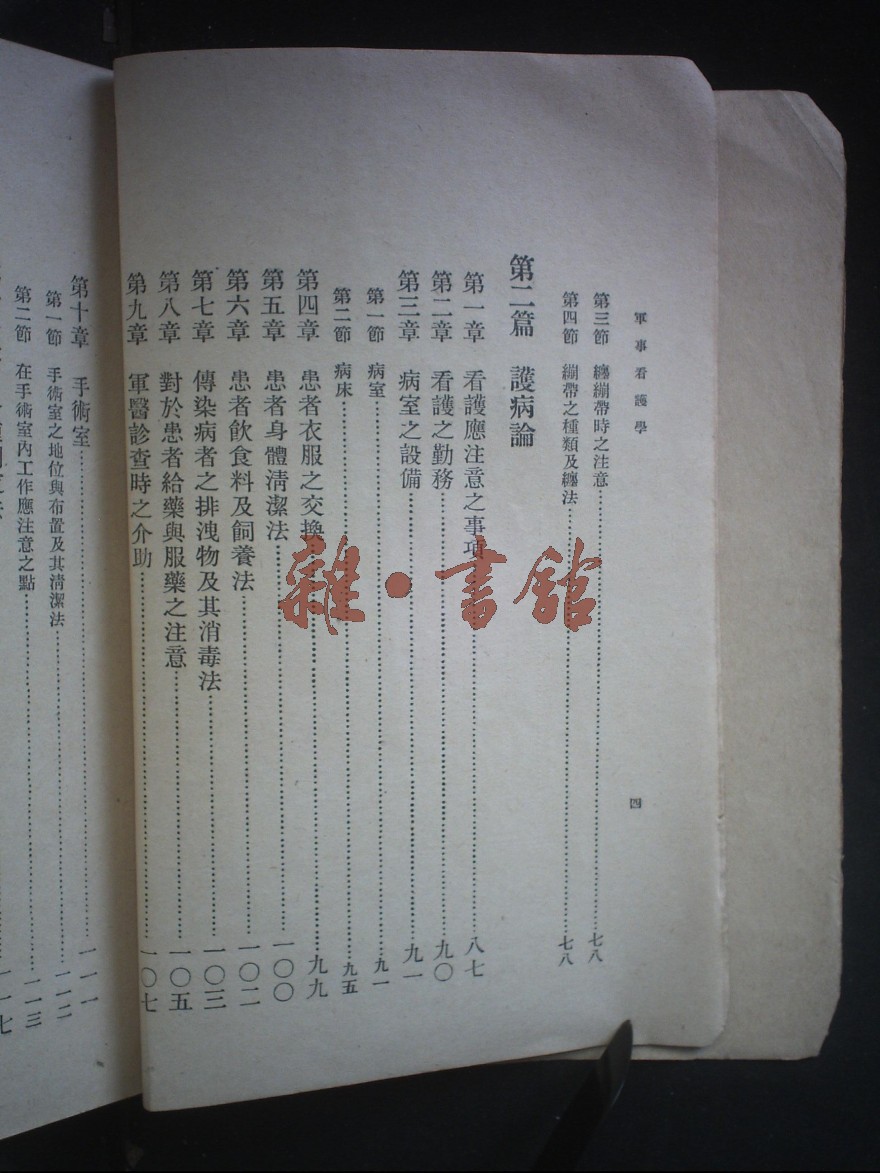 軍事看護學
四
第三節 纏繃帶時之注意……七八
第四節 繃帶之種類及纏法……七八
第二篇 護病論
第一章 看護應注意之事項……八七
第二章 看護之勤務……九〇
第三章 病室之設備……九一
第一節 病室……九一
第二節 病床……九五
第四章 患者衣服之交換……九九
第五章 患者身體清潔法……一〇〇
第六章 患者飲食料及飼養法……一〇二
第七章 傳染病者之排洩物及其消毒法……一〇三
第八章 對於患者給藥與服藥之注意……一〇五
第九章 軍醫診查時之介助……一〇七
第十章 手術室……一一一
第一節 手術室之地位與布置及其清潔法……一一二
第二節 在手術室內工作應注意之點……一一三
一一七
雜·書館